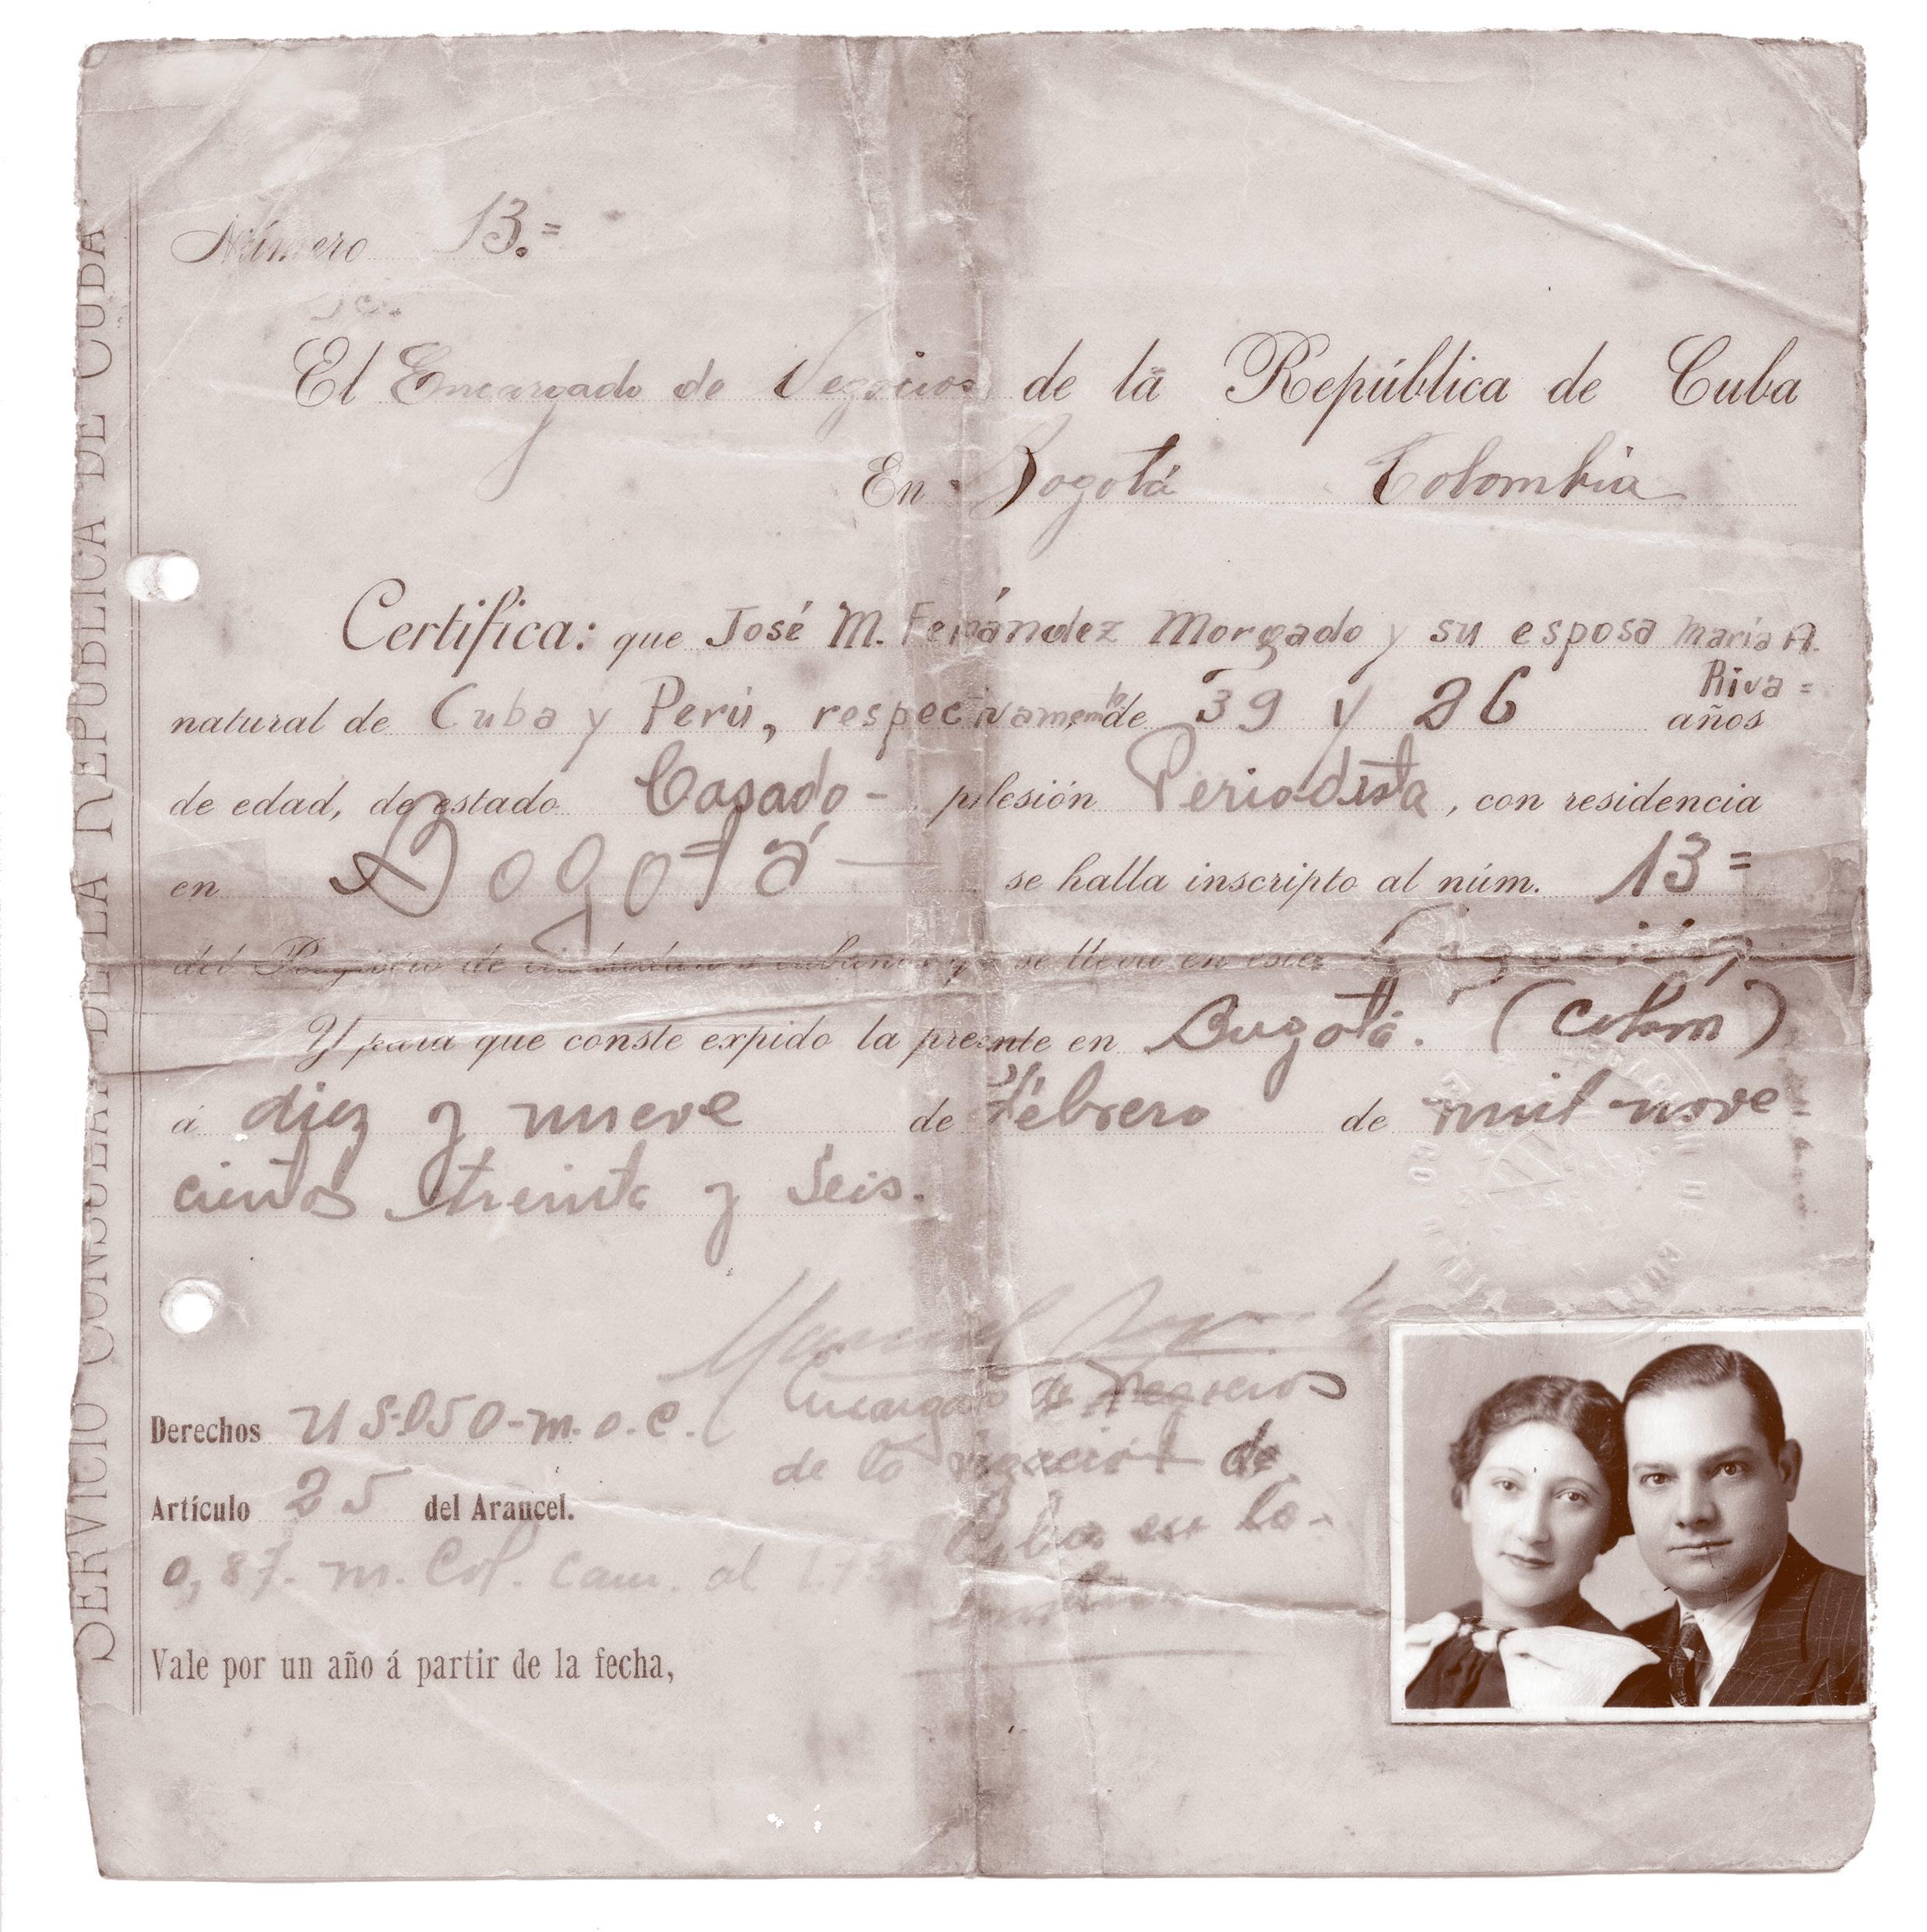 SERVICIO CONSULAR DE LA REPUBLICA DE CUBA
Número 13.=
El Encargado de Negocios de la República de Cuba
En Bogotá Colombia
Certifica: que José M. Fernández Morgado y su esposa maría A.
Riva =
natural de Cuba y Perú, respectivamente de 39 y 26 años
de edad, de estado Casado - profesión Periodista, con residencia
en Bogotá — se halla inscripto al núm. 13 =
del Registro de ciudadanos cubanos que se lleva en esta Legación,
Y para que conste expido la presente en Bogotá. (Colom)
á diez y nueve de Febrero de mil nove
cientos treinta y Seis.
Encargado de Negocios
de la Legación de
Cuba en Co-
Derechos U S-050-m.o.c.
Artículo 25 del Arancel.
0,87. m. Col. Cam. al 1.75
Vale por un año á partir de la fecha,